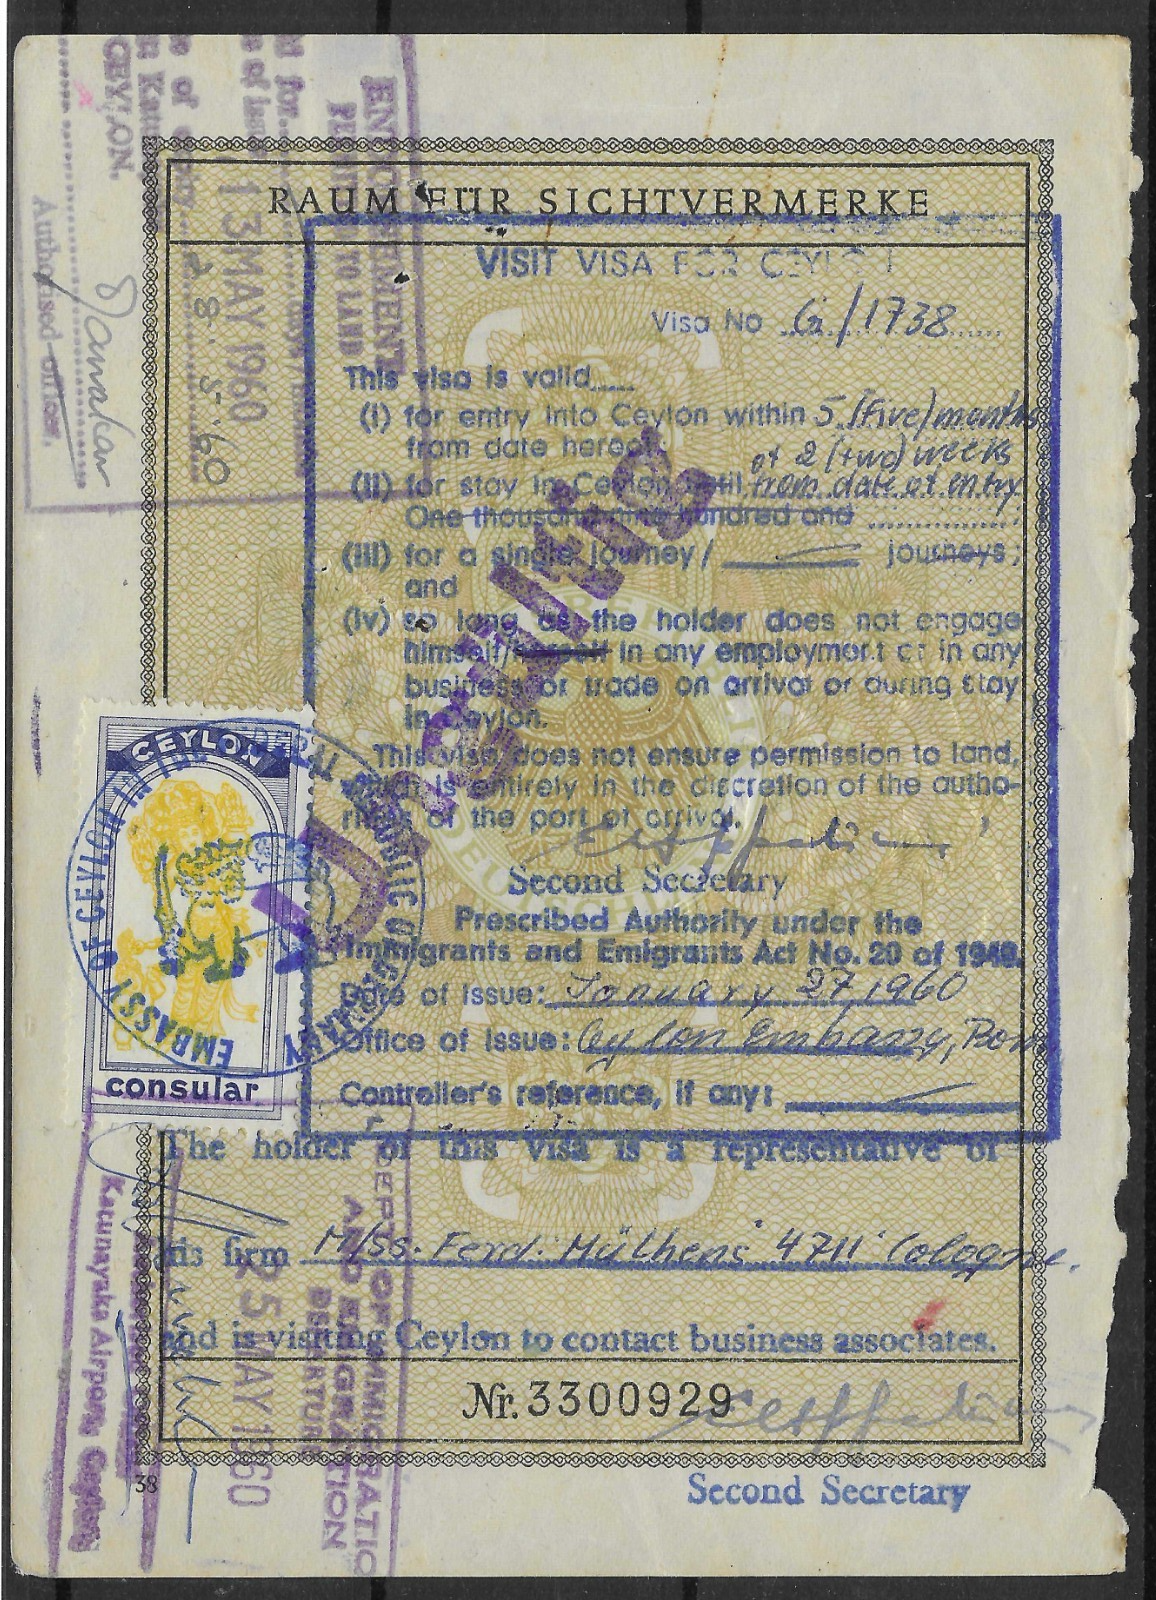 RAUM FÜR SICHTVERMERKE
VISIT VISA FOR CEYLON
Visa No G/1738
This visa is valid
(i) for entry into Ceylon within 5 (Five) months
from date hereof
of 2 (two) weeks
(ii) for stay in Ceylon until from date of entry
One thousand nine hundred and ;
(iii) for a single journey/ journeys;
and
(iv) so long as the holder does not engage
himself/herself in any employment or in any
business or trade on arrival or during stay
in Ceylon.
This visa does not ensure permission to land,
which is entirely in the discretion of the autho-
rities of the port of arrival.
Second Secretary
Prescribed Authority under the
Immigrants and Emigrants Act No. 20 of 1948.
Date of Issue: January 27, 1960
Office of Issue: Ceylon Embassy, Bonn
Controller's reference, if any:
The holder of this visa is a representative of
his firm M/ss. Ferd. Mülhens '4711' Cologne.
and is visiting Ceylon to contact business associates.
Nr. 3300929
Second Secretary
38
CEYLON
consular
EMBASSY OF CEYLON IN THE FEDERAL REPUBLIC OF GERMANY
ENDORSEMENT
TO LAND
13 MAY 1960
28.5.60
CEYLON
Authorised officer.
DEPT. OF IMMIGRATION
AND EMIGRATION
DEPARTURE
25 MAY 1960
Katunayaka Airport, Ceylon